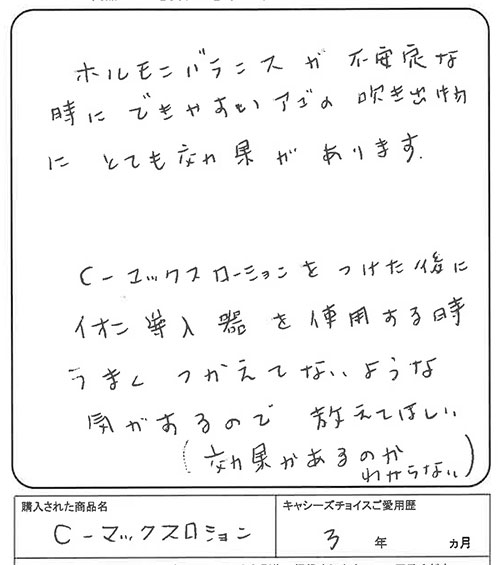 ホルモンバランスが不安定な
時にできやすいアゴの吹き出物
に とても効果があります.
C-マックスローションをつけた後に
イオン導入器を使用する時
うまく つかえてないような
気がするので 教えてほしい
(効果があるのか
わからない)
購入された商品名
キャシーズチョイスご愛用歴
C-マックスロション
3 年 ヵ月